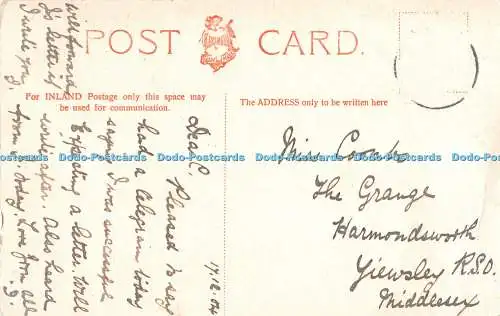 POST CARD.
For INLAND Postage only this space may
be used for communication.
The ADDRESS only to be written here
17.12.04
Dear C. Pleased to say
had a telegram today
saying I was successful.
Expecting a letter. Will
write after. Also heard
from today. Love from all
I wrote you.
J's letter
will forward
Miss Coombs
The Grange
Harmondsworth
Yiewsley R.S.O.
Middlesex
Dodo-Postcards Dodo-Postcards Dodo-Postcards Dodo-Postcards Dodo-Postcards Dodo-Postcards